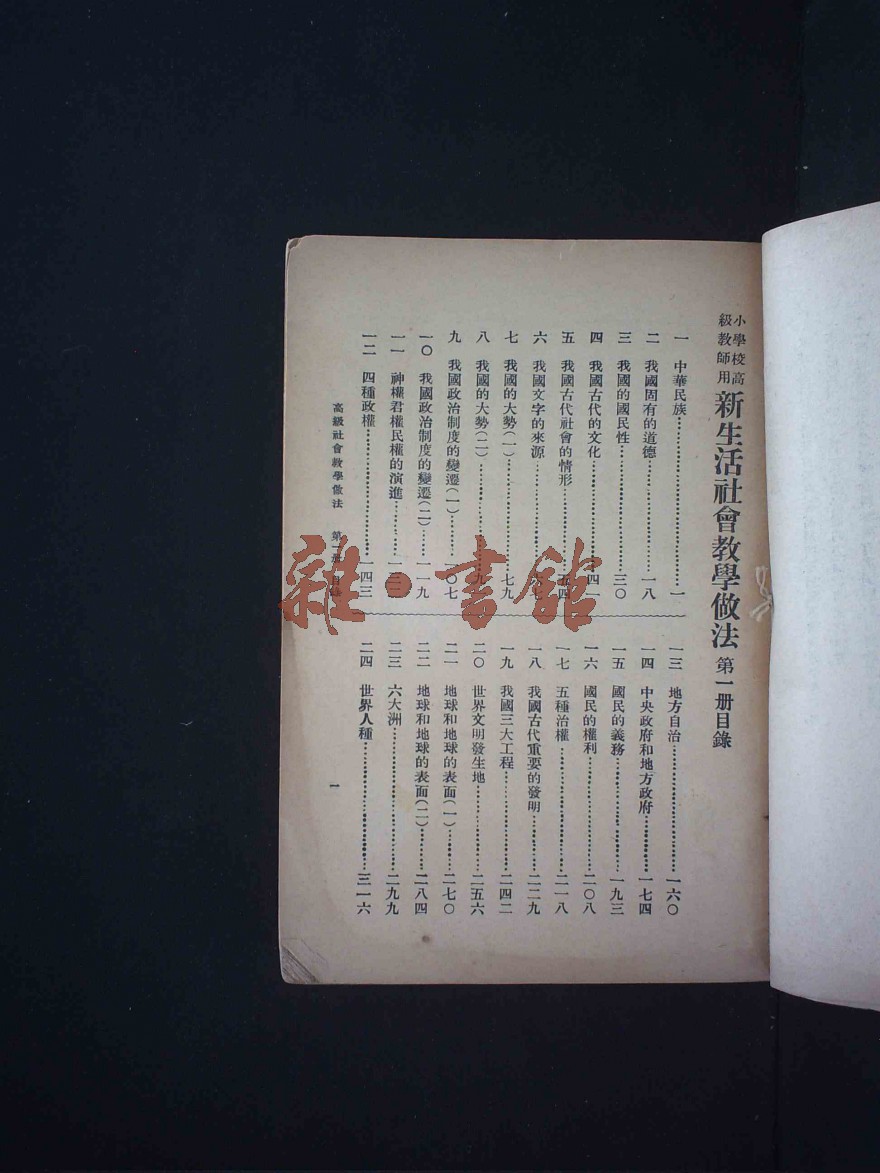 小學校高級教師用 新生活社會教學做法 第一册目錄
一 中華民族……一
二 我國固有的道德……一八
三 我國的國民性……三〇
四 我國古代的文化……四一
五 我國古代社會的情形……五四
六 我國文字的來源……六七
七 我國的大勢(一)……七九
八 我國的大勢(二)……九
九 我國政治制度的變遷(一)……一〇七
一〇 我國政治制度的變遷(二)……一一九
一一 神權君權民權的演進……一三
一二 四種政權……一四三
一三 地方自治……一六〇
一四 中央政府和地方政府……一七四
一五 國民的義務……一九三
一六 國民的權利……二〇八
一七 五種治權……二一八
一八 我國古代重要的發明……二二九
一九 我國三大工程……二四二
二〇 世界文明發生地……二五六
二一 地球和地球的表面(一)……二七〇
二二 地球和地球的表面(二)……二八四
二三 六大洲……二九九
二四 世界人種……三一六
高級社會教學做法 第一册 目錄
一
雜·書館